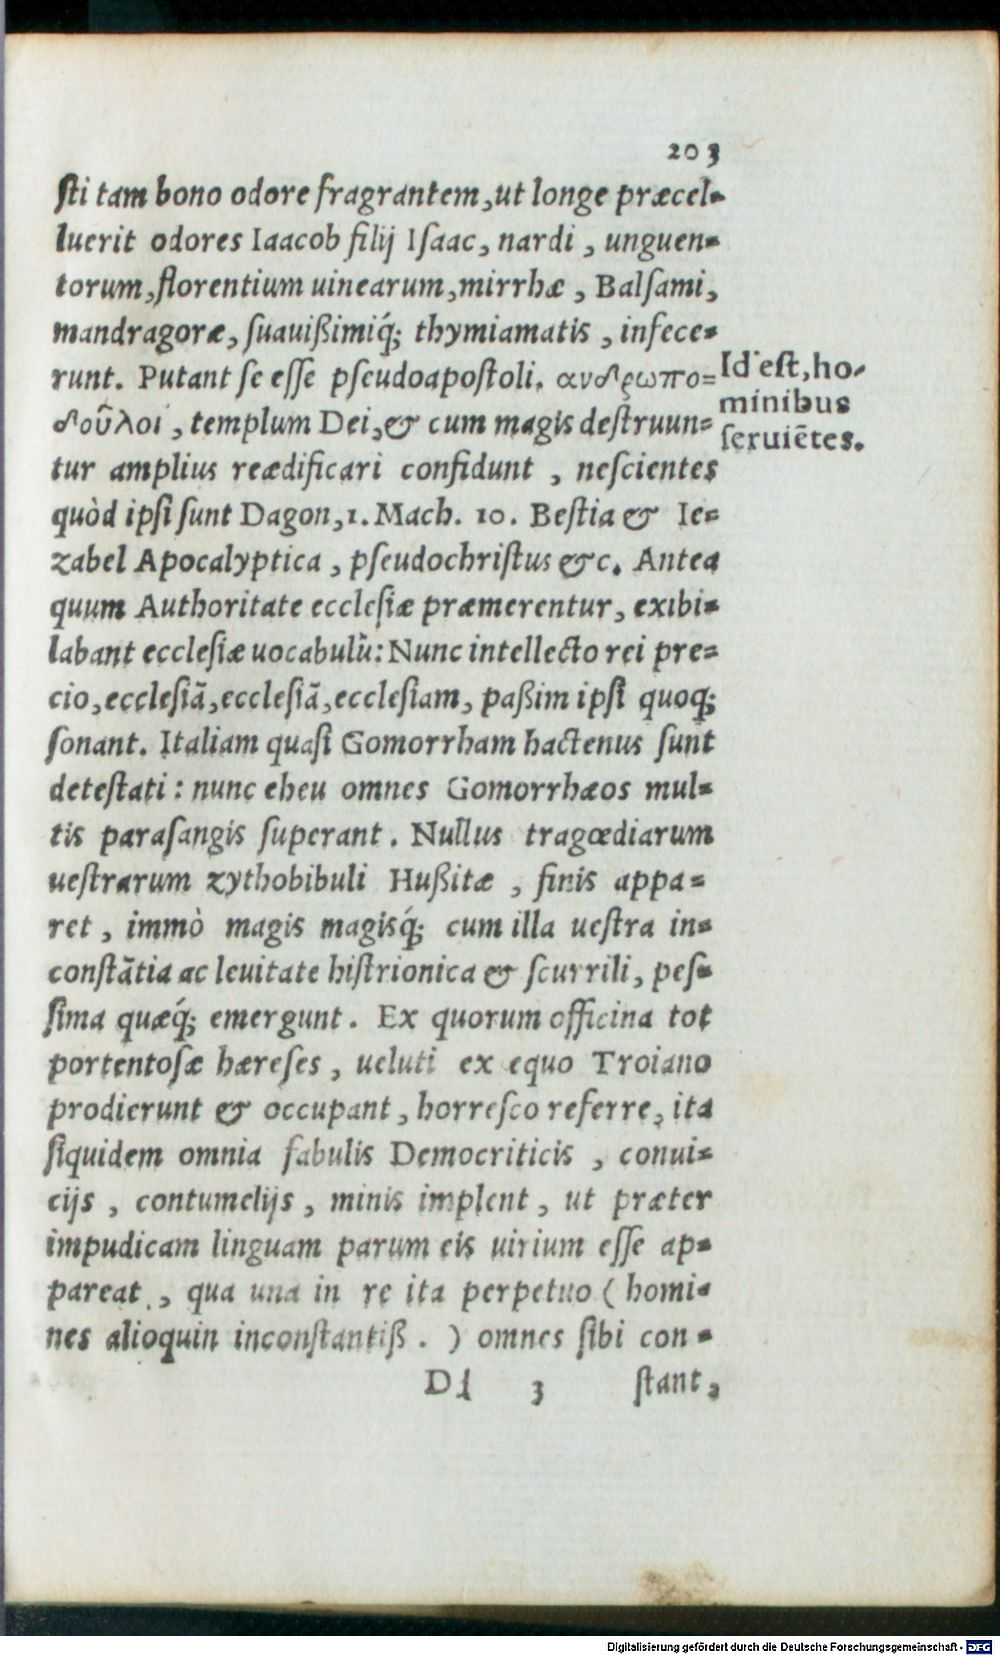 203
sti tam bono odore fragrantem, ut longe præcel-
luerit odores Iaacob filij Isaac, nardi, unguen-
torum, florentium uinearum, mirrhæ, Balsami,
mandragoræ, suauißimiq́; thymiamatis, infece-
runt. Putant se esse pseudoapostoli. ανθρωπο-
δοῦλοι, templum Dei, & cum magis destruun-
tur amplius reædificari confidunt, nescientes
quòd ipsi sunt Dagon, 1. Mach. 10. Bestia & Ie-
zabel Apocalyptica, pseudochristus &c. Antea
quum Authoritate ecclesiæ præmerentur, exibi-
labant ecclesiæ uocabulũ: Nunc intellecto rei pre-
cio, ecclesiã, ecclesiã, ecclesiam, paßim ipsi quoq;
sonant. Italiam quasi Gomorrham hactenus sunt
detestati: nunc eheu omnes Gomorrhæos mul-
tis parasangis superant. Nullus tragœdiarum
uestrarum zythobibuli Hußitæ, finis appa-
ret, immò magis magisq́; cum illa uestra in-
constãtia ac leuitate histrionica & scurrili, pes-
sima quæq́; emergunt. Ex quorum officina tot
portentosæ hæreses, ueluti ex equo Troiano
prodierunt & occupant, horresco referre, ita
siquidem omnia fabulis Democriticis, conui-
cijs, contumelijs, minis implent, ut præter
impudicam linguam parum eis uirium esse ap-
pareat, qua una in re ita perpetuo (homi-
nes alioquin inconstantiß.) omnes sibi con-
Dd 3 stant,
Id est, ho-
minibus
seruiẽtes.
Digitalisierung gefördert durch die Deutsche Forschungsgemeinschaft - DFG